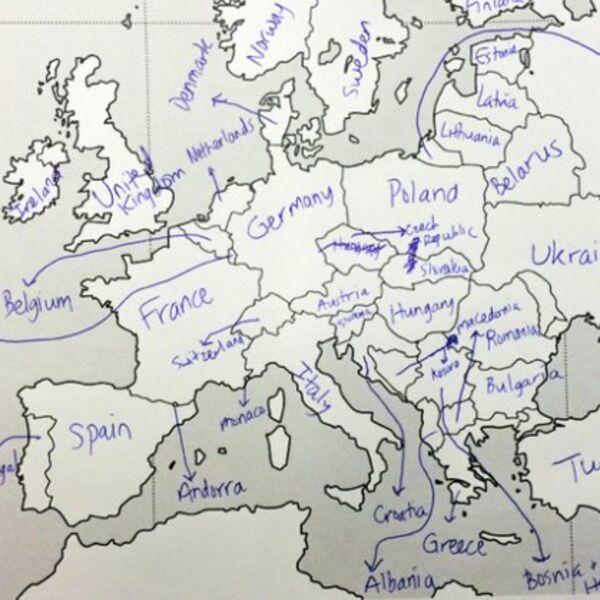 Finland
Norway
Sweden
Estonia
Denmark
Latvia
Netherlands
Lithuania
Ireland
United
Kingdom
Belarus
Germany
Poland
Czech
Republic
Slovakia
Ukrai
Belgium
France
Austria
Hungary
Macedonia
Romania
Switzerland
Kosovo
Italy
Bulgaria
Monaco
Spain
gal
Andorra
Croatia
Greece
Tu
Albania
Bosnia +
H